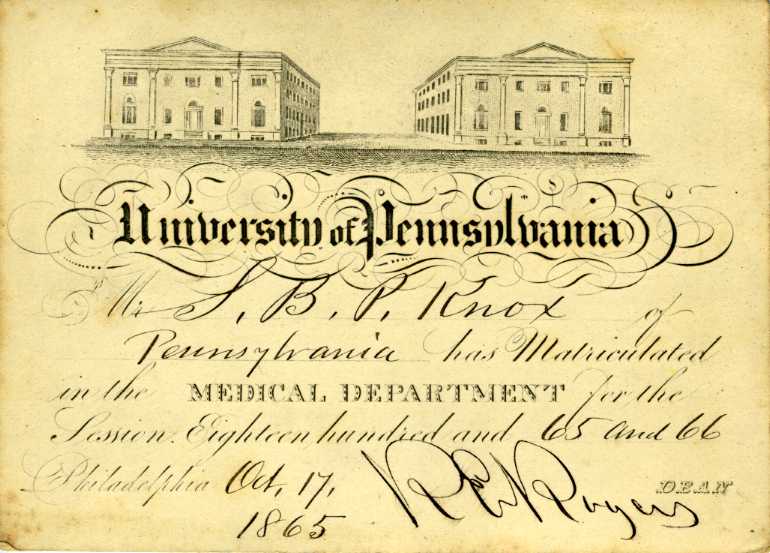 University of Pennsylvania
Mr S. B. P. Knox of
Pennsylvania has Matriculated
in the MEDICAL DEPARTMENT for the
Session. Eighteen hundred and 65 and 66
Philadelphia Oct, 17, R E Rogers DEAN
1865